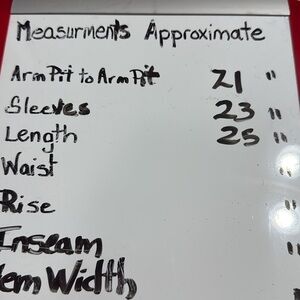 Measurments Approximate
Arm Pit to Arm Pit 21 "
Sleeves 23 "
Length 25 "
Waist "
Rise "
Inseam "
Width "